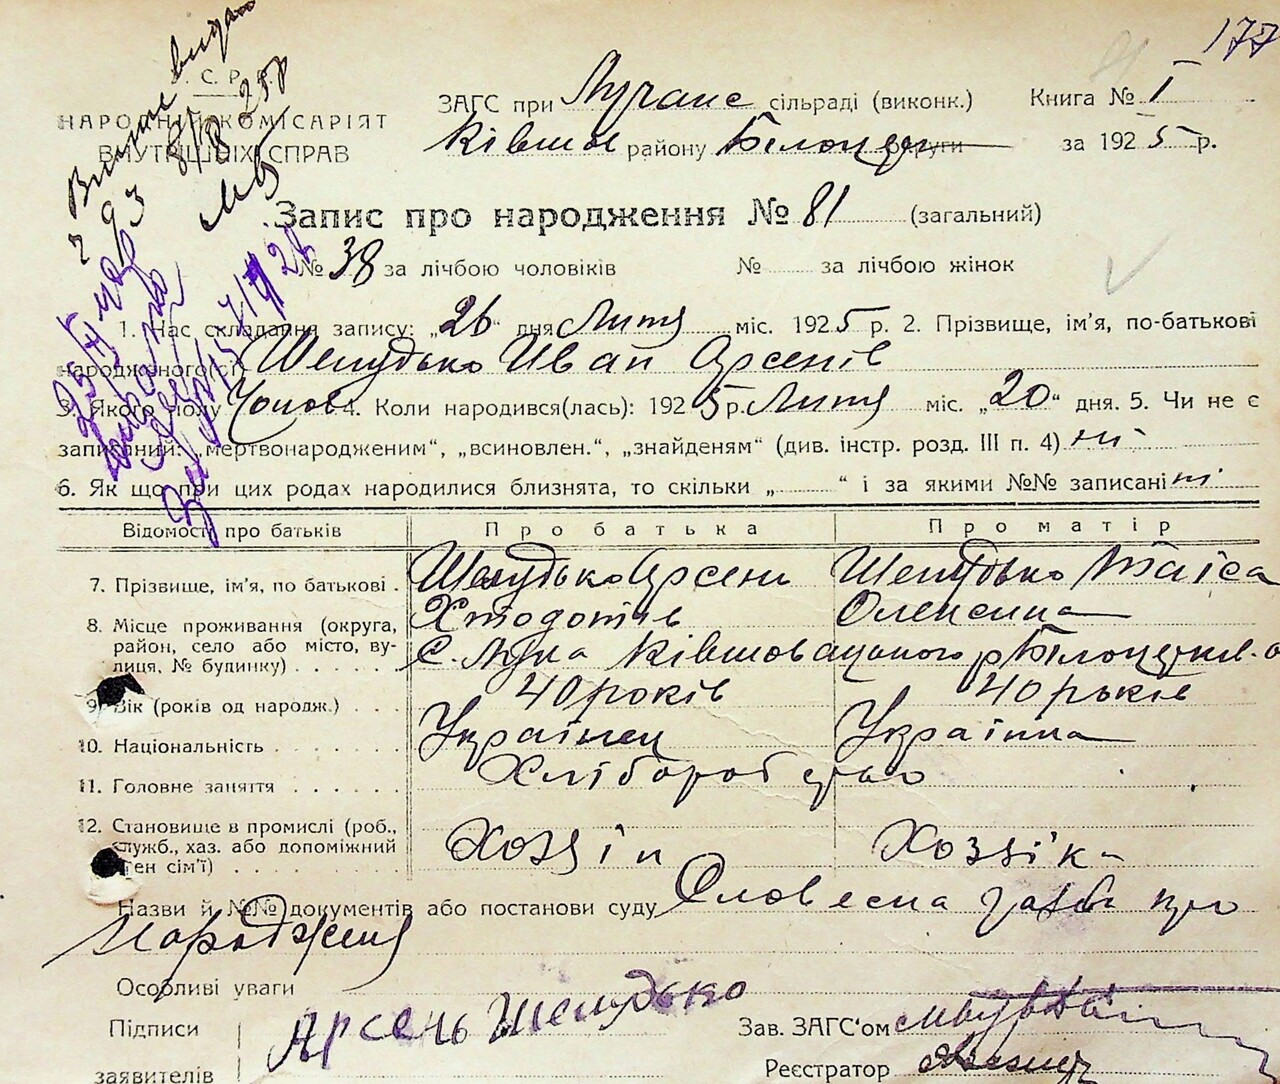 177
С.Р.Р.
НАРОДНІЙ КОМІСАРІЯТ
ВНУТРІШНІХ СПРАВ
ЗАГС при Лучанс сільраді (виконк.) Книга № I
Ківшов району Білоцер округи за 1925 р.
Запис про народження № 81 (загальний)
№ 38 за лічбою чоловіків № за лічбою жінок
1. Час складання запису: „26“ дня Лютя міс. 1925 р. 2. Прізвище, ім’я, по-батькові
народженого(ої) Шелудько Иван Арсенів
3. Якого полу Чолов 4. Коли народився(лась): 1925 р. Лютя міс. „20“ дня. 5. Чи не є
записаний: „мертвонародженим“, „всиновлен.“, „знайденям“ (див. інстр. розд. III п. 4) ні
6. Як що при цих родах народилися близнята, то скільки „ “ і за якими №№ записані ні
Відомості про батьків Про батька Про матір
7. Прізвище, ім’я, по батькові . Шелудько Арсень Шелудько Таїса
Хтодотів Олексина
8. Місце проживання (округа,
район, село або місто, ву-
лиця, № будинку) . . . . . С. Лука Ківшовацького р Білоцерків. о
9. Вік (років од народж.) . . . 40 років 40 років
10. Національність . . . . . . . Українец Українка
11. Головне заняття . . . . . . Хліборобство
12. Становище в промислі (роб.,
служб., хаз. або допоміжний
член сім’ї) . . . . . . . . . Хозяін Хозяйка
Назви й №№ документів або постанови суду Словесна заява про
народження
Особливі уваги
Підписи
заявителів Арсень Шелудько
Зав. ЗАГС’ом
Реєстратор